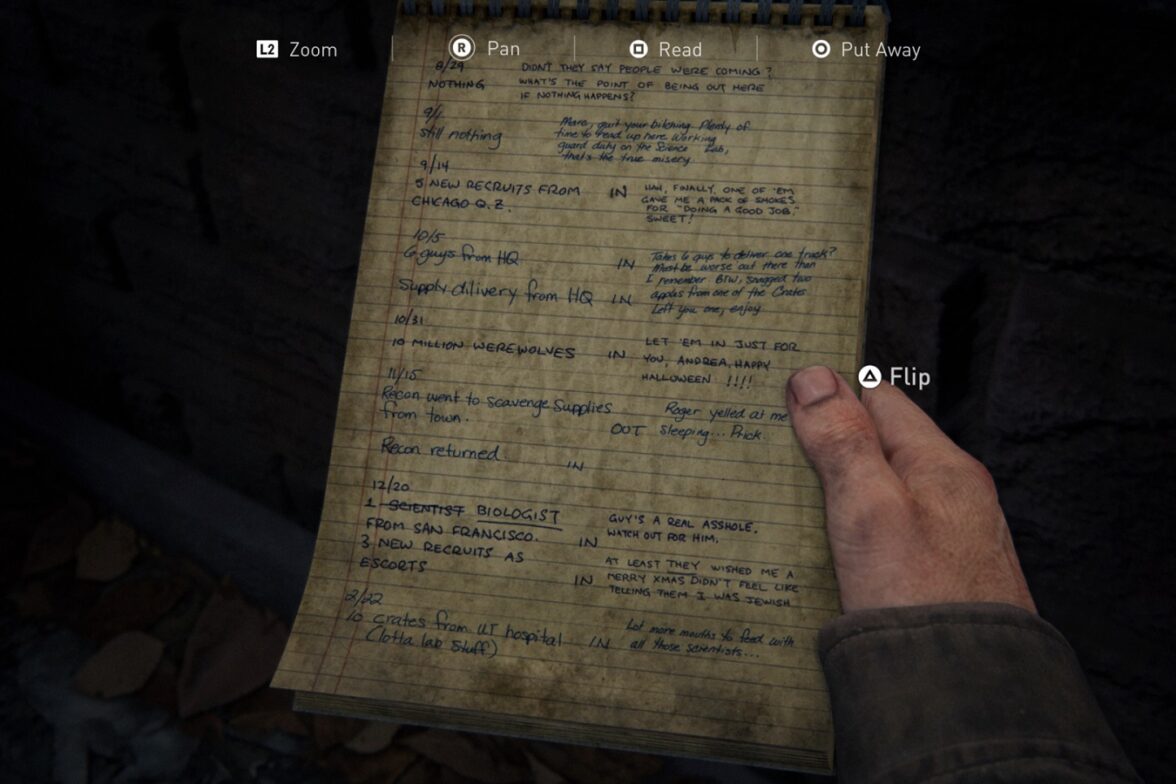 L2 Zoom
R Pan
Read
Put Away
8/29
NOTHING
DIDN'T THEY SAY PEOPLE WERE COMING?
WHAT'S THE POINT OF BEING OUT HERE
IF NOTHING HAPPENS?
9/1
still nothing
Marc, quit your bitching. Plenty of
time to read up here. Working
guard duty on the Science Lab,
that's the true misery.
9/14
5 NEW RECRUITS FROM
CHICAGO Q.Z.
IN
HAH, FINALLY, ONE OF 'EM
GAVE ME A PACK OF SMOKES
FOR "DOING A GOOD JOB."
SWEET!
10/5
6 guys from HQ
IN
Supply dilivery from HQ
IN
Takes 6 guys to deliver one truck?
Must be worse out there than
I remember. BTW, snagged two
apples from one of the Crates
Left you one, enjoy
10/31
10 MILLION WEREWOLVES
IN
LET 'EM IN JUST FOR
YOU, ANDREA, HAPPY
HALLOWEEN !!!!
11/15
Recon went to scavenge supplies
from town.
OUT
Roger yelled at me
sleeping... Prick.
Recon returned.
IN
Flip
12/20
1 SCIENTIST BIOLOGIST
FROM SAN FRANCISCO.
IN
GUY'S A REAL ASSHOLE.
WATCH OUT FOR HIM.
3 NEW RECRUITS AS
ESCORTS
IN
AT LEAST THEY WISHED ME A
MERRY XMAS DIDN'T FEEL LIKE
TELLING THEM I WAS JEWISH
2/22
10 crates from UT hospital
(lotta lab stuff)
IN
Lot more mouths to feed with
all those scientists...